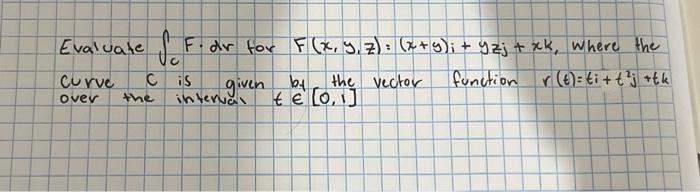 Evaluate ∫_C F·dr for F(x, y, z) = (x+y)i + yzj + xk, where the
curve C is given by the vector function r(t)=ti+t²j+tk
over the interval t ∈ [0,1]